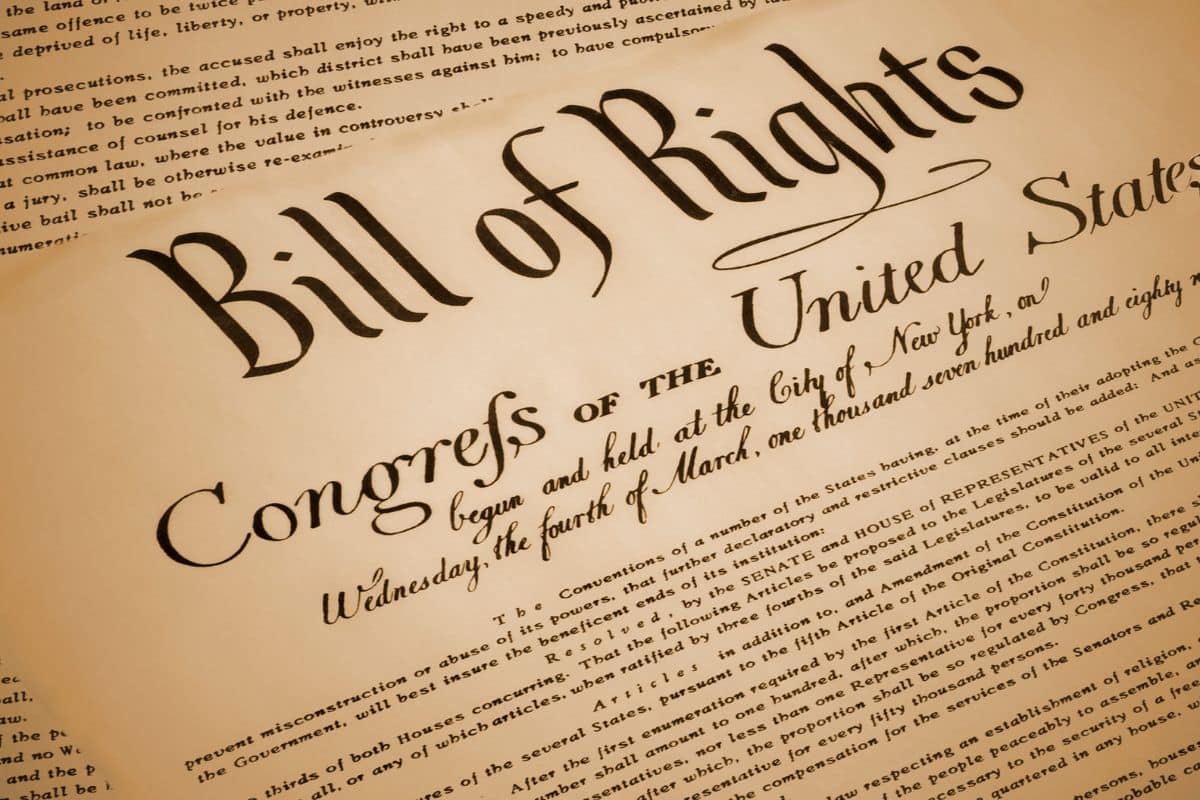 the land
same offence to be twice
deprived of life, liberty, or property,
al prosecutions, the accused shall enjoy the right to a speedy and
all have been committed, which district shall have been previously ascertained by
sation; to be confronted with the witnesses against him; to have
ssistance of counsel for his defence.
at common law, where the value in controversy
a jury, shall be otherwise
ive bail shall not be
Bill of Rights
Congreſs OF THE United States
begun and held at the City of New York, on
Wednesday, the fourth of March, one thousand seven hundred and eighty
The Conventions of a number of the States having, at the time of their adopting the
prevent misconstruction or abuse of its powers, that further declaratory and restrictive clauses should be added: And as
the Government, will best insure the beneficent ends of its institution:
Resolved, by the SENATE and HOUSE of REPRESENTATIVES of the
thirds of both Houses concurring. That the following Articles be proposed to the Legislatures of the several
all, or any of which articles, when ratified by three fourths of the said Legislatures, to be valid to all
Articles in addition to, and Amendment of the Constitution of the
of the several States, pursuant to the fifth Article of the Original Constitution.
After the first enumeration required by the first Article of the Constitution, there
shall amount to one hundred, after which, the proportion shall be so
nor less than one Representative for every forty thousand
after which, the proportion shall be so regulated by Congress, that
for every fifty thousand persons.
compensation for the services of the Senators and
respecting an establishment of religion,
the people peaceably to assemble,
to the security of a
quartered in any house,
persons,
all,
the
and no
and the p
shall be